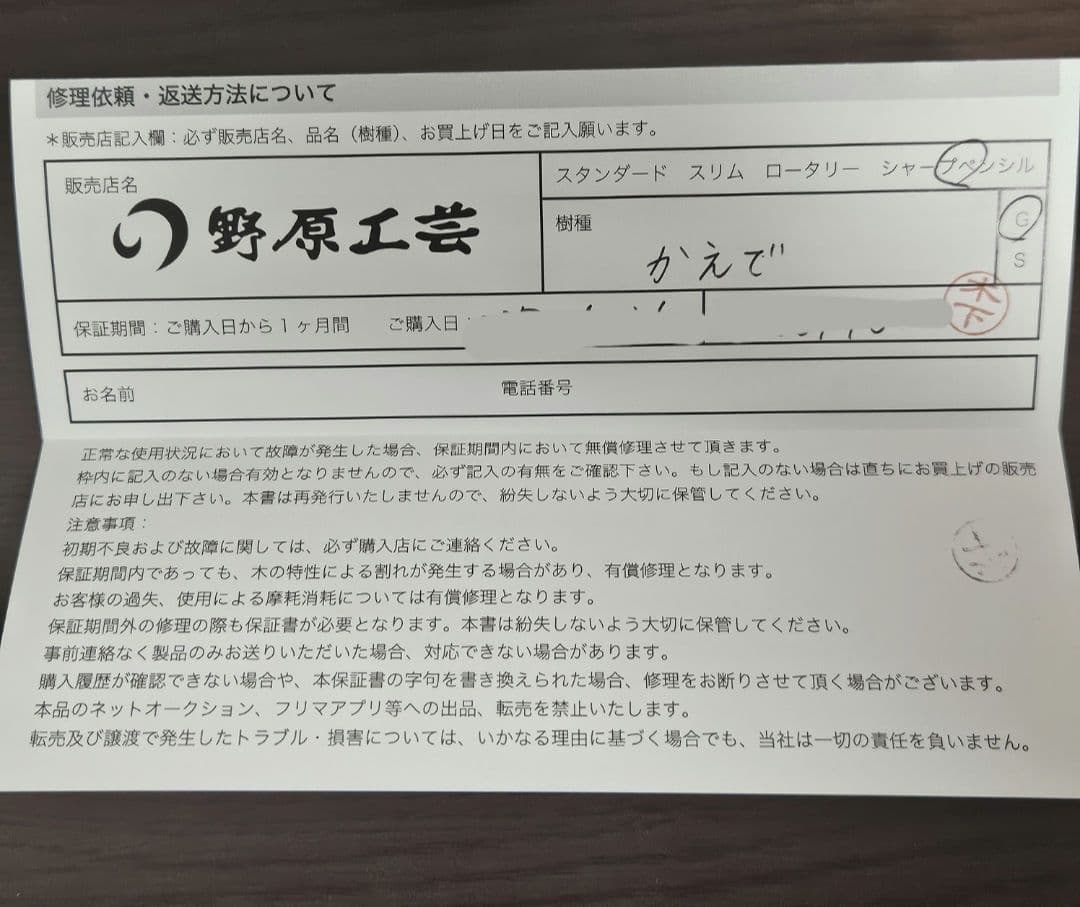 修理依頼・返送方法について
＊販売店記入欄：必ず販売店名、品名（樹種）、お買上げ日をご記入願います。
販売店名
野原工芸
スタンダード スリム ロータリー シャープペンシル
樹種
かえで
G
S
保証期間：ご購入日から１ヶ月間 ご購入日：
お名前 電話番号
正常な使用状況において故障が発生した場合、保証期間内において無償修理させて頂きます。
枠内に記入のない場合有効となりませんので、必ず記入の有無をご確認下さい。もし記入のない場合は直ちにお買上げの販売
店にお申し出下さい。本書は再発行いたしませんので、紛失しないよう大切に保管してください。
注意事項：
初期不良および故障に関しては、必ず購入店にご連絡ください。
保証期間内であっても、木の特性による割れが発生する場合があり、有償修理となります。
お客様の過失、使用による摩耗消耗については有償修理となります。
保証期間外の修理の際も保証書が必要となります。本書は紛失しないよう大切に保管してください。
事前連絡なく製品のみお送りいただいた場合、対応できない場合があります。
購入履歴が確認できない場合や、本保証書の字句を書き換えられた場合、修理をお断りさせて頂く場合がございます。
本品のネットオークション、フリマアプリ等への出品、転売を禁止いたします。
転売及び譲渡で発生したトラブル・損害については、いかなる理由に基づく場合でも、当社は一切の責任を負いません。